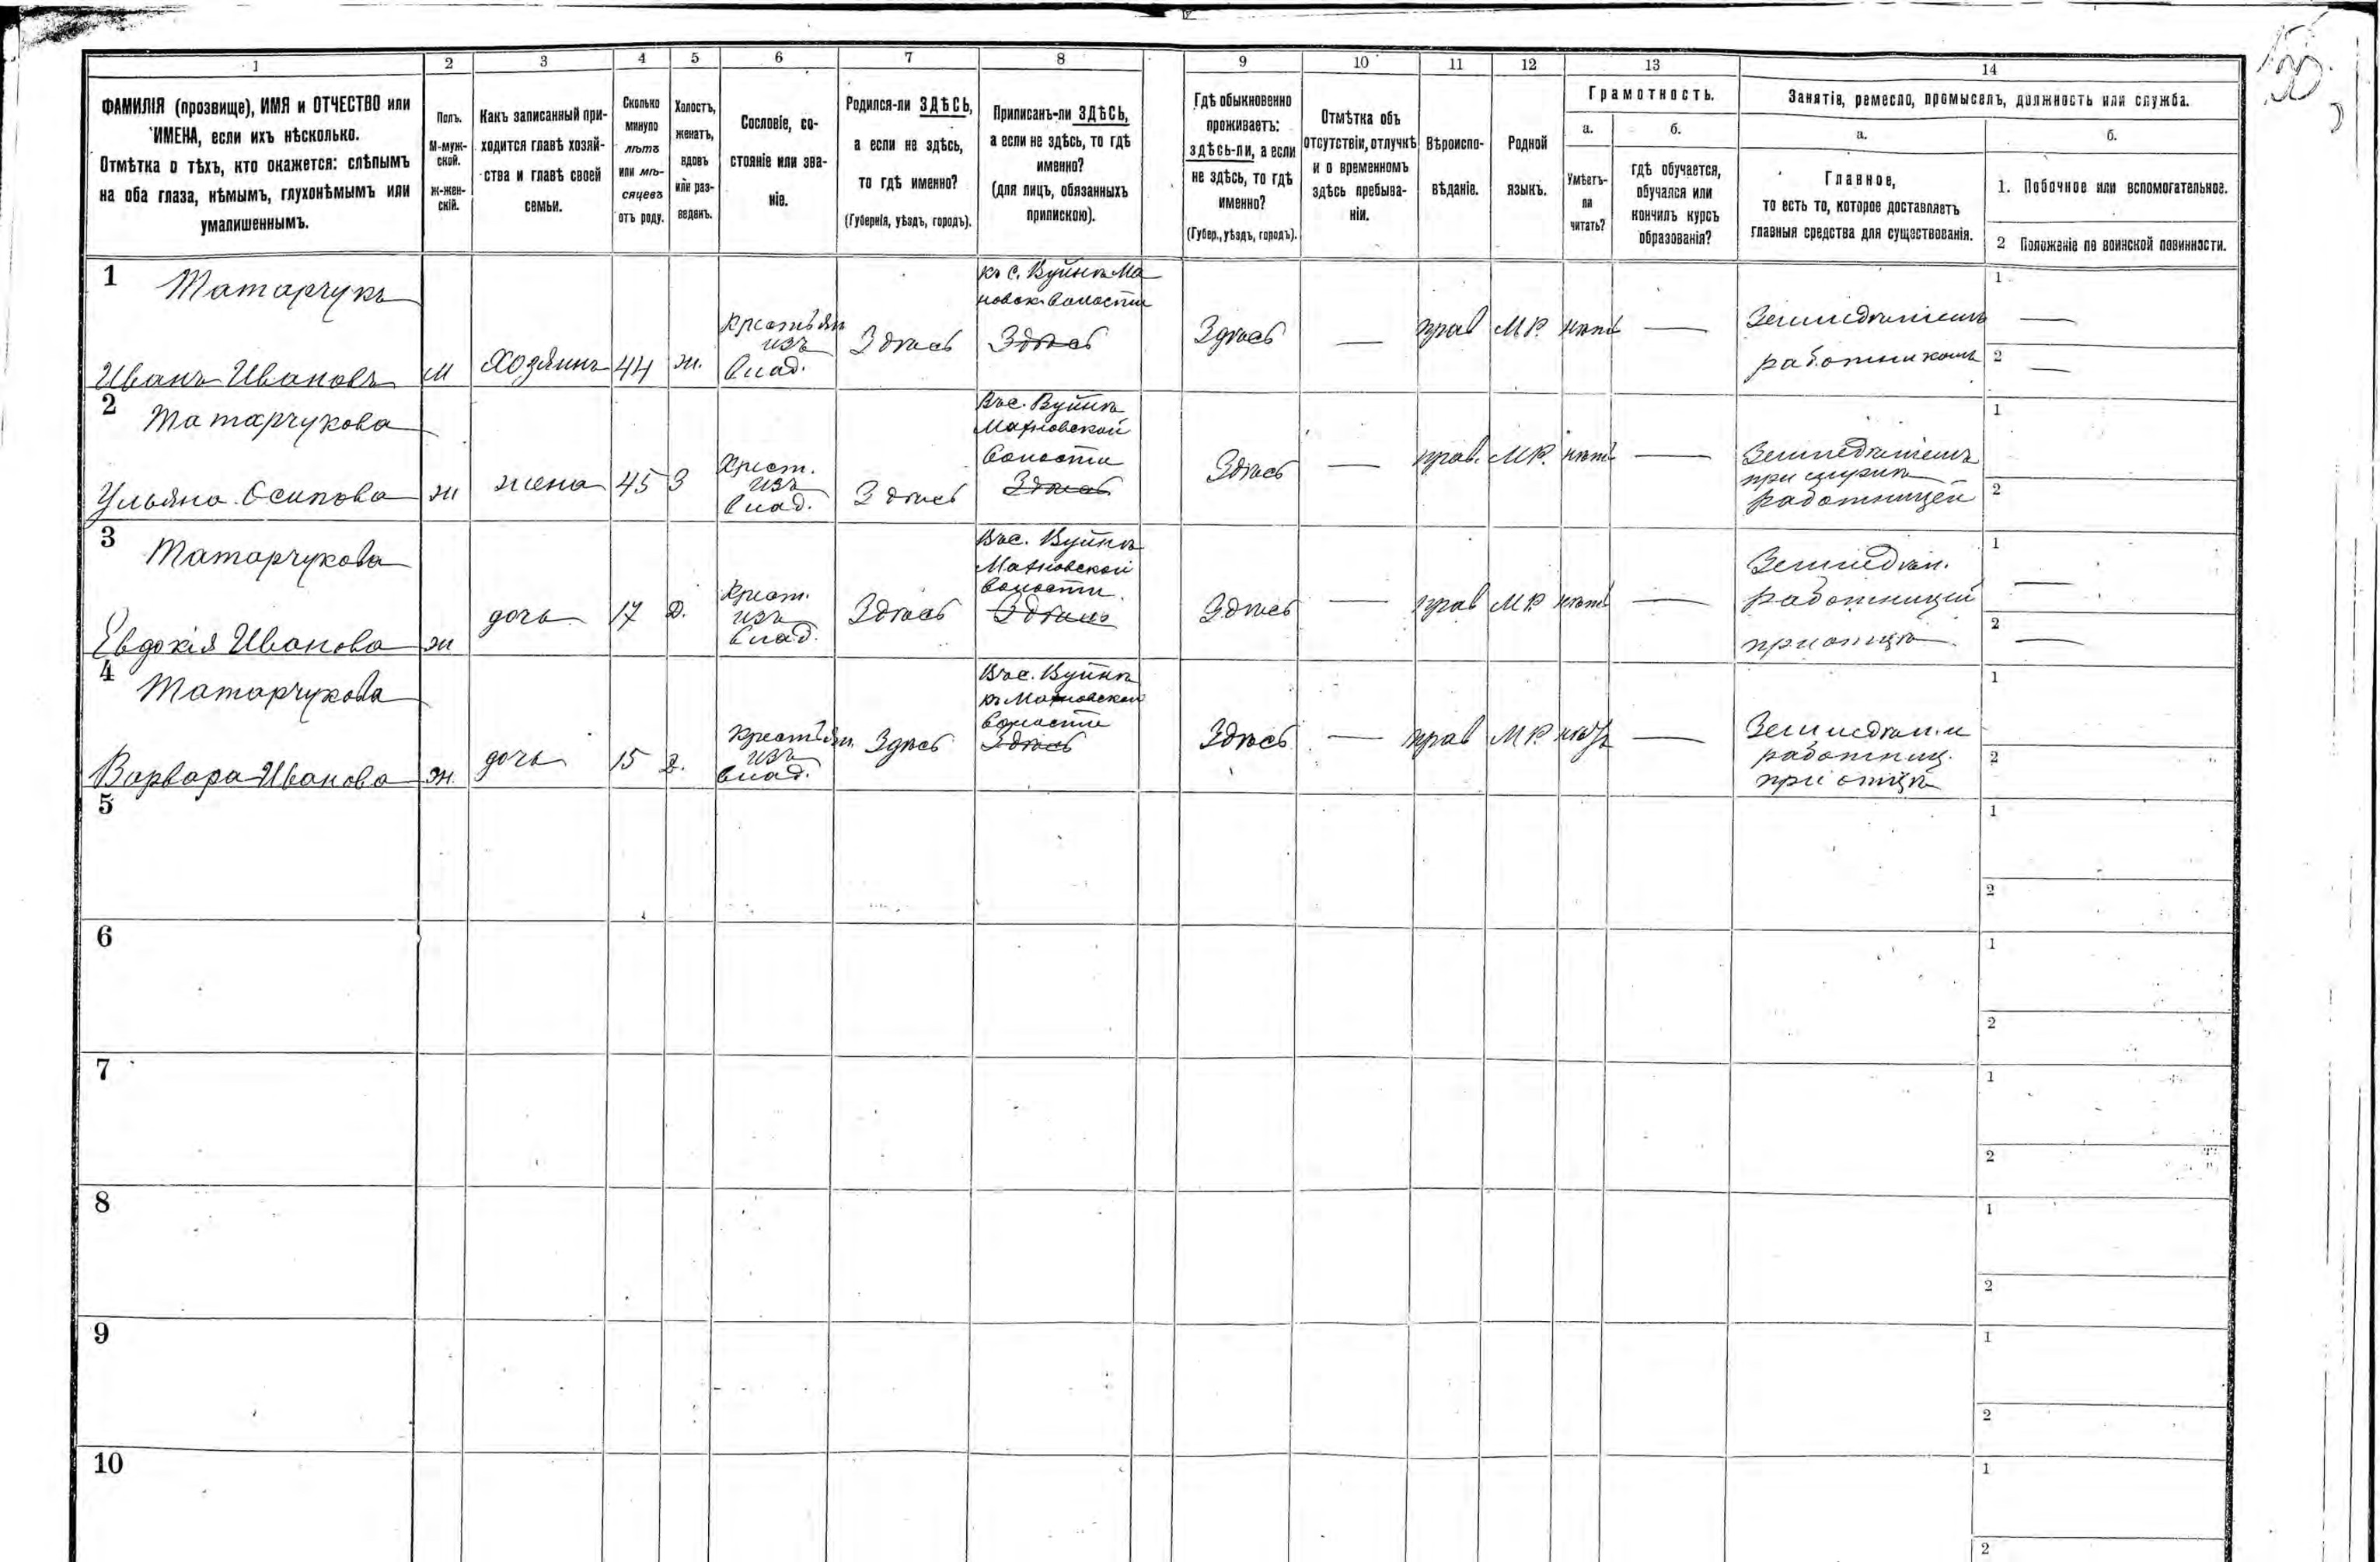 1 2 3 4 5 6 7 8 9 10 11 12 13 14
ФАМИЛІЯ (прозвище), ИМЯ и ОТЧЕСТВО или
ИМЕНА, если ихъ нѣсколько.
Отмѣтка о тѣхъ, кто окажется: слѣпымъ
на оба глаза, нѣмымъ, глухонѣмымъ или
умалишеннымъ.
Полъ.
М-муж-
ской.
ж-жен-
скій.
Какъ записанный при-
ходится главѣ хозяй-
ства и главѣ своей
семьи.
Сколько
минуло
лѣтъ
или мѣ-
сяцевъ
отъ роду.
Холостъ,
женатъ,
вдовъ
или раз-
веденъ.
Сословіе, со-
стояніе или зва-
ніе.
Родился-ли ЗДѢСЬ,
а если не здѣсь,
то гдѣ именно?
(Губернія, уѣздъ, городъ).
Приписанъ-ли ЗДѢСЬ,
а если не здѣсь, то гдѣ
именно?
(для лицъ, обязанныхъ
припискою).
Гдѣ обыкновенно
проживаетъ:
здѣсь-ли, а если
не здѣсь, то гдѣ
именно?
(Губер., уѣздъ, городъ).
Отмѣтка объ
отсутствіи, отлучкѣ
и о временномъ
здѣсь пребыва-
ніи.
Вѣроиспо-
вѣданіе.
Родной
языкъ.
Грамотность.
а.
Умѣетъ-
ли
читать?
б.
гдѣ обучается,
обучался или
кончилъ курсъ
образованія?
Занятіе, ремесло, промыселъ, должность или служба.
а.
Главное,
то есть то, которое доставляетъ
главныя средства для существованія.
б.
1. Побочное или вспомогательное.
2 Положеніе по воинской повинности.
1 Татарчукъ
Иванъ Ивановъ
М
Хозяинъ
44
ж.
крестьян
изъ
влад.
Здѣсь
къ с. Вуйнѣ Ма
новск. волости
Здѣсь
Здѣсь
—
прав
МР.
нѣтъ
—
Земледѣліемъ
работникомъ
1 —
2 —
2 Татарчукова
Ульяна Осипова
ж
жена
45
З
Крест.
изъ
влад.
Здѣсь
Въ с. Вуйнѣ
Махновской
волости
Здѣсь
Здѣсь
—
прав.
МР.
нѣтъ
—
Земледѣліемъ
при
работницей
1
2
3 Татарчукова
Евдокія Иванова
ж
дочь
17
д.
Крест.
изъ
влад.
Здѣсь
Въ с. Вуйнѣ
Махновской
волости.
Здѣсь
Здѣсь
—
прав
МР
нѣтъ
—
Земледѣл.
работницей
при отцѣ
1 —
2 —
4 Татарчукова
Варвара Иванова
ж.
дочь
15
д.
Крестьян.
изъ
влад.
Здѣсь
Въ с. Вуйнѣ
Махновской
волости
Здѣсь
Здѣсь
—
прав
МР.
нѣтъ
—
работниц.
при отцѣ
1
2
5
1
2
6
1
2
7
1
2
8
1
2
9
1
2
10
1
2